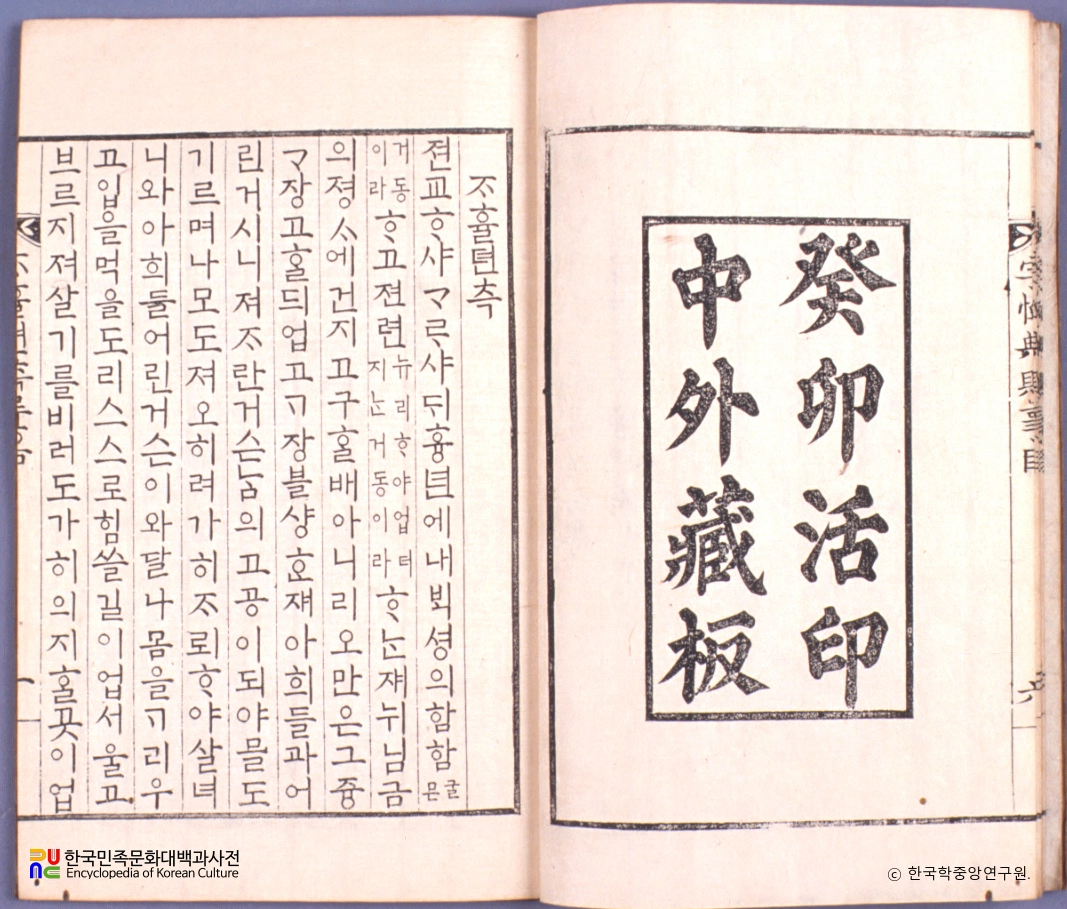 字恤典則 事目
六
癸卯活印
中外藏板
ᄌᆞ휼뎐측
젼교ᄒᆞ샤ᄀᆞᄅᆞ샤ᄃᆡ흉년에내ᄇᆡᆨ셩의함함굴믄
거동이라ᄒᆞ고젼련뉴리ᄒᆞ야업더지ᄂᆞᆫ거동이라ᄒᆞᄂᆞᆫ쟤뉘님금
의졍ᄉᆞ에건지고구홀배아니리오만은그즁
ᄀᆞ장고홀듸업고ᄀᆞ장블샹ᄒᆞᆫ쟤아희들과어
린거시니져ᄌᆞ란거슨ᄂᆞᆷ의고공이되야믈도
기르며나모도져오히려가히ᄌᆞ뢰ᄒᆞ야살녀
니와아희둘어린거슨이와달나몸을ᄀᆞ리우
고입을먹을도리스스로힘쓸길이업서울고
브르지져살기를비러도가히의지홀곳이업
一
한국민족문화대백과사전
Encyclopedia of Korean Culture
© 한국학중앙연구원.